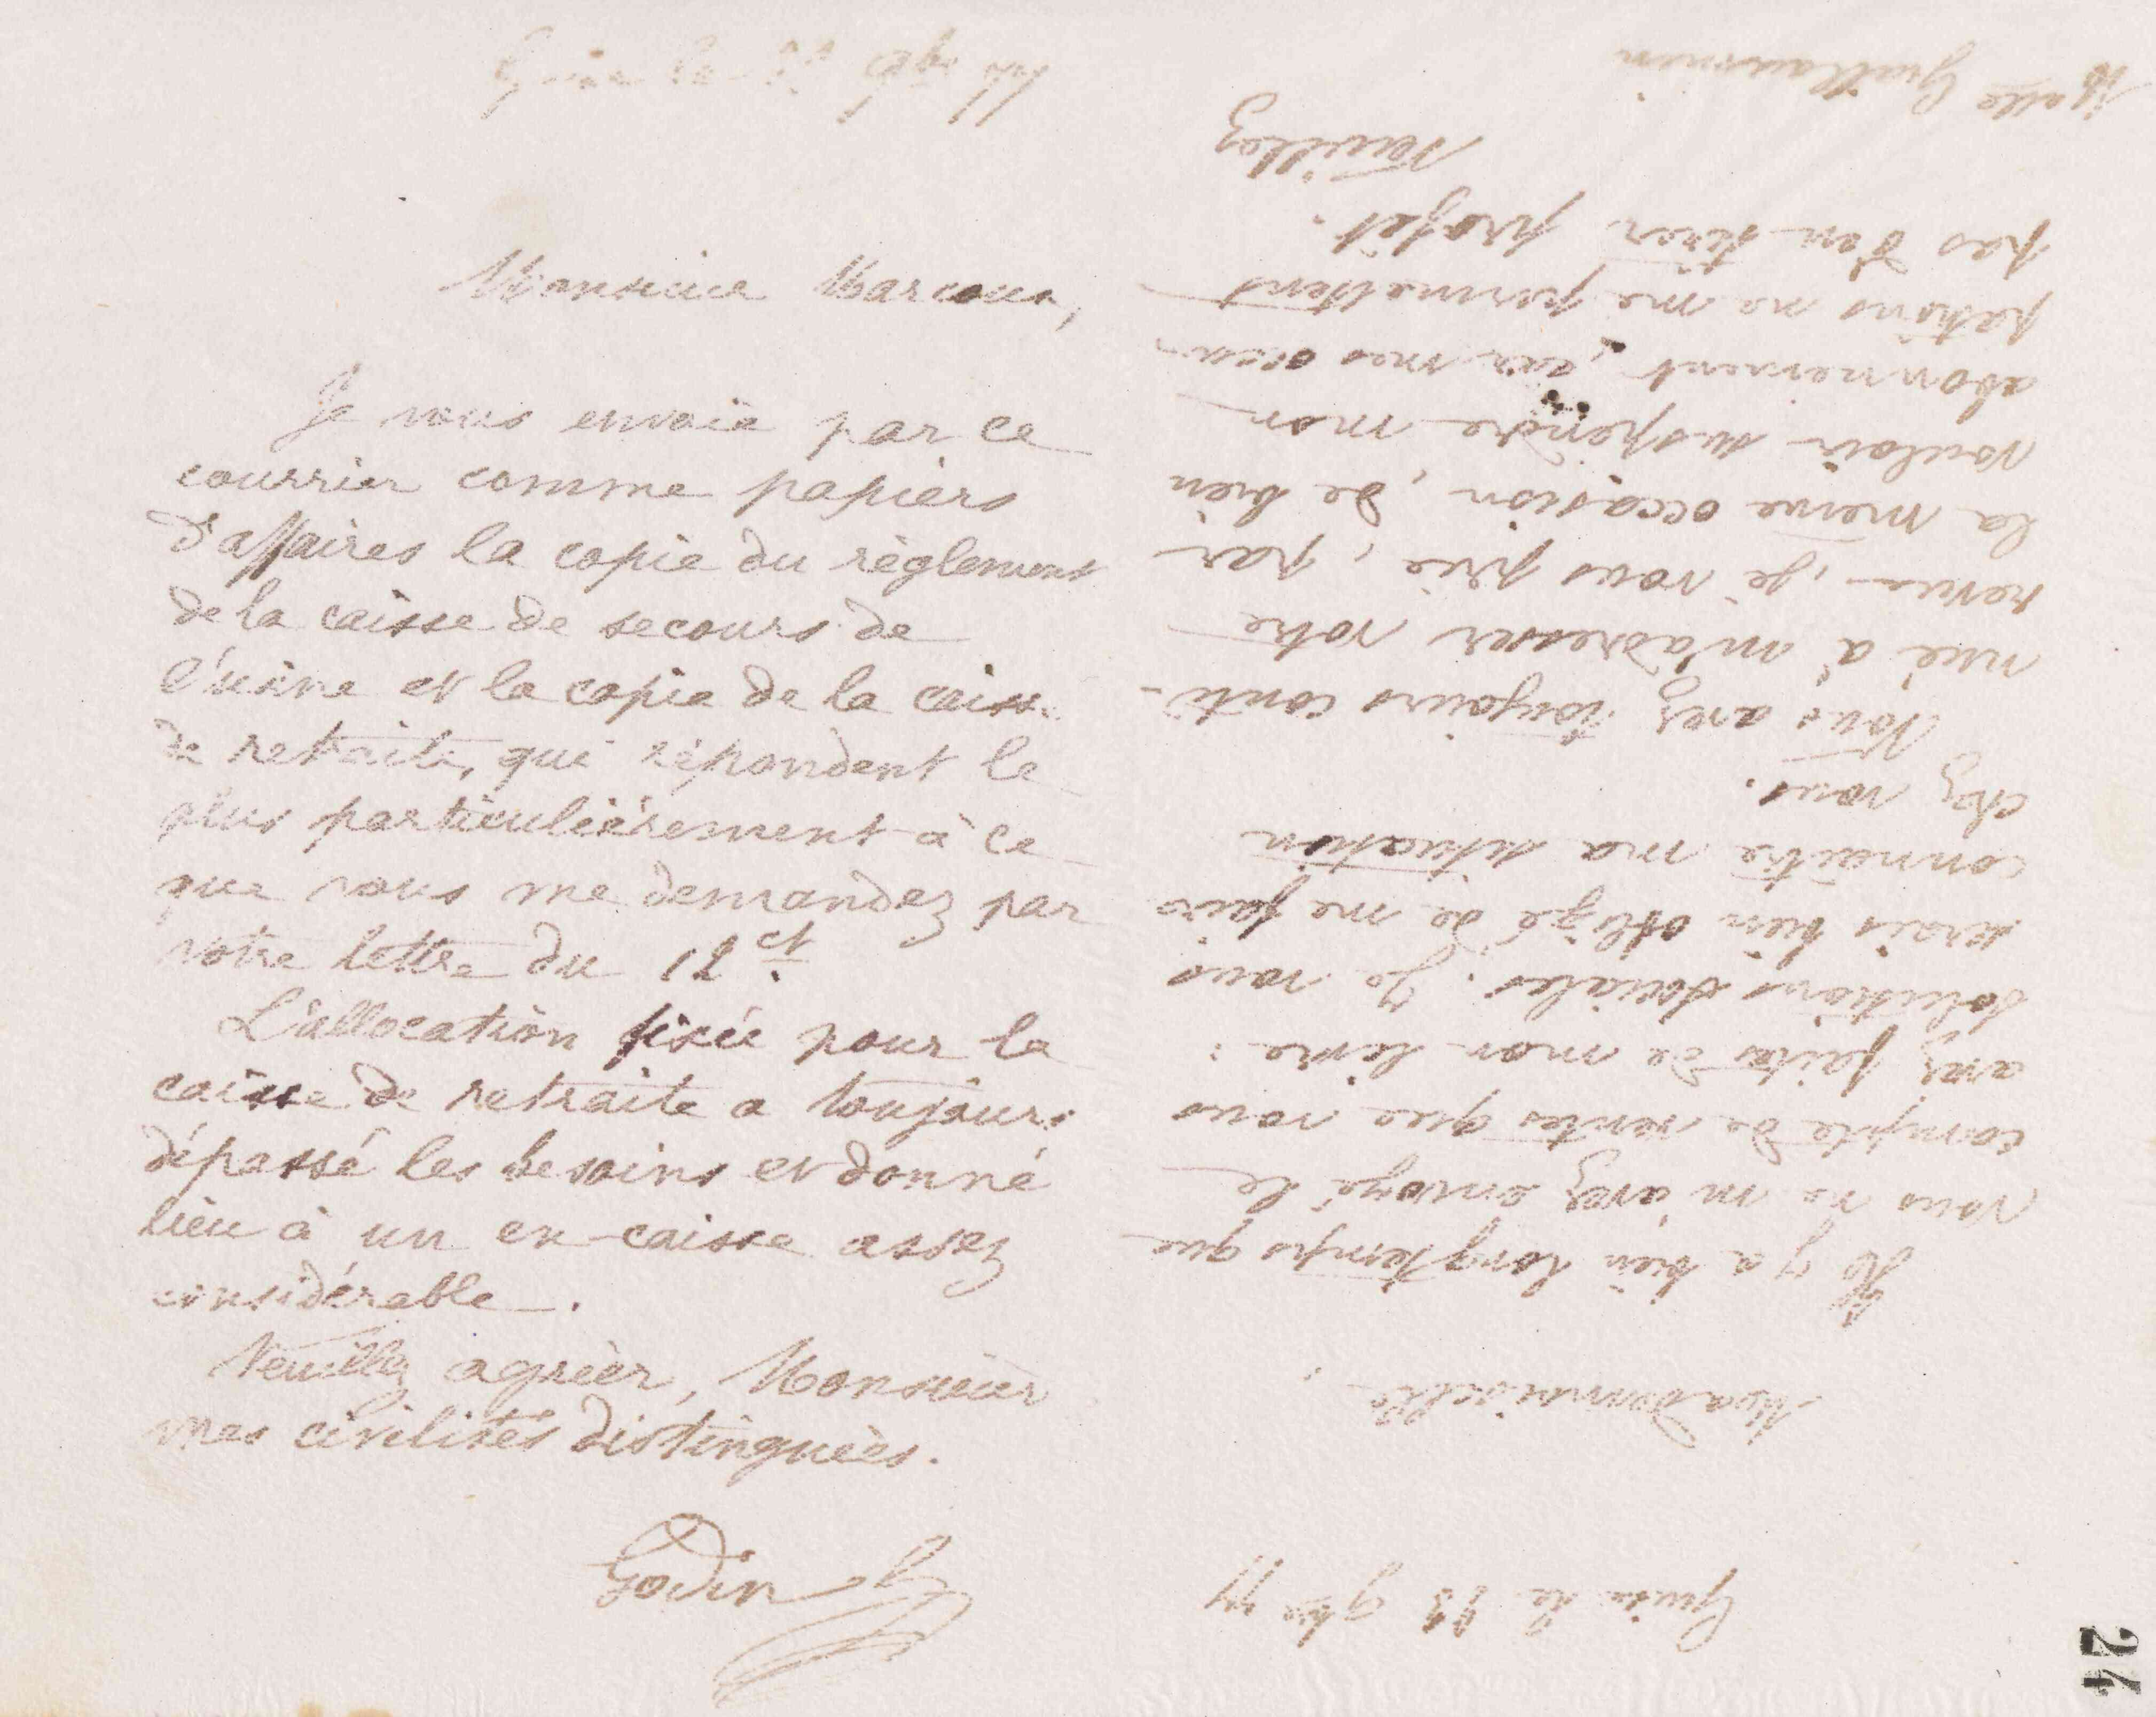 Guise le 9bre 77
Monsieur Marcoux,
Je vous envoie par ce
courrier comme papiers
d'affaires la copie du règlement
de la caisse de secours de
l'usine et la copie de la caisse
de retraite, qui répondent le
plus particulièrement à ce
que vous me demandez par
votre lettre du 12 ct.
L'allocation fixée pour la
caisse de retraite a toujours
dépassé les besoins et donné
lieu à un en-caisse assez
considérable.
Veuillez agréer, Monsieur
mes civilités distinguées.
Godin
Guise le 13 9bre 77
Mademoiselle,
Il y a bien longtemps que
vous ne m'avez envoyé le
compte de ventes que vous
avez faites de mon livre :
Solutions Sociales. Je vous
serais bien obligé de me faire
connaître ma situation
chez vous.
Vous avez toujours conti-
nué à m'adresser votre
revue, je vous prie, par
la même occasion, de bien
vouloir suspendre mon
abonnement, car mes occu-
pations ne me permettent
pas d'en tirer profit.
Veuillez
Melle Guillaumin
24